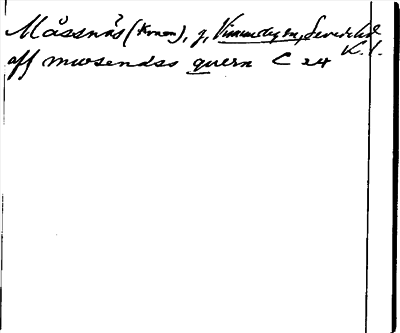 Måssnäs (Kronen), j, Vimmerby sn, Sevede hd
K.l.
aff mwsendss quern C 24